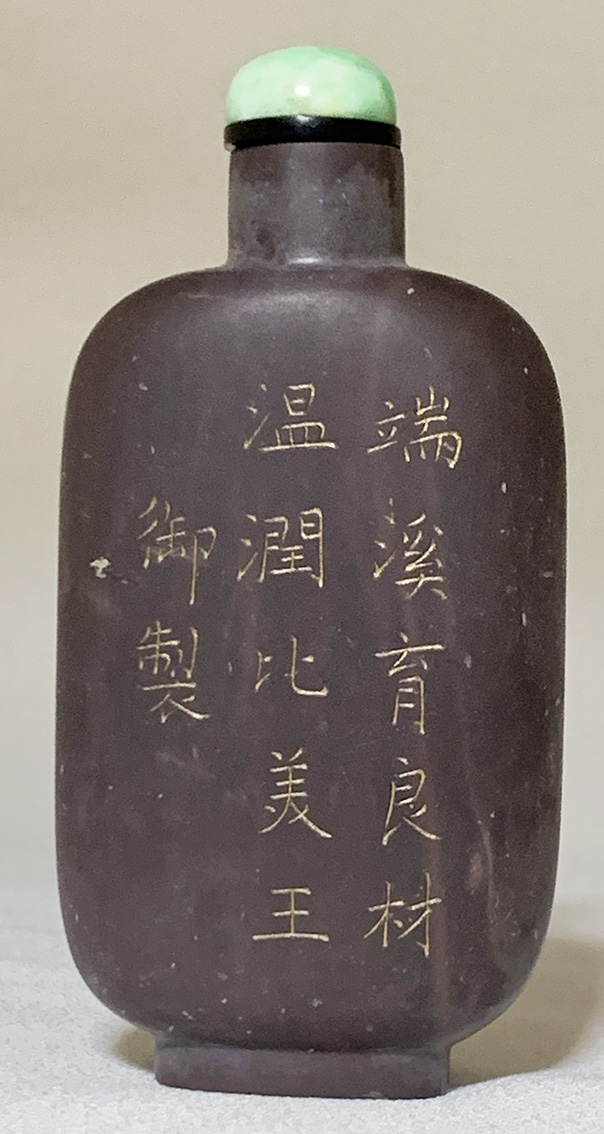 端溪育良材
温潤比美王
御製